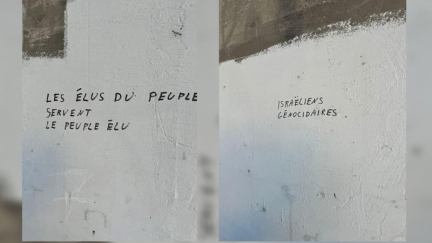 LES ÉLUS DU PEUPLE
SERVENT
LE PEUPLE ÉLU
ISRAËLIENS
GÉNOCIDAIRES